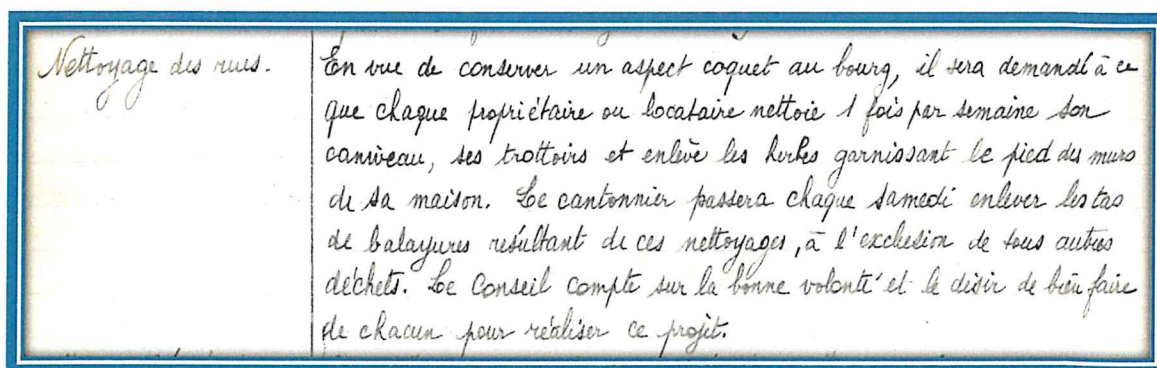 Nettoyage des rues.
En vue de conserver un aspect coquet au bourg, il sera demandé à ce
que chaque propriétaire ou locataire nettoie 1 fois par semaine son
caniveau, ses trottoirs et enlève les herbes garnissant le pied des murs
de sa maison. Le cantonnier passera chaque samedi enlever les tas
de balayures résultant de ces nettoyages, à l'exclusion de tous autres
déchets. Le Conseil compte sur la bonne volonté et le désir de bien faire
de chacun pour réaliser ce projet.